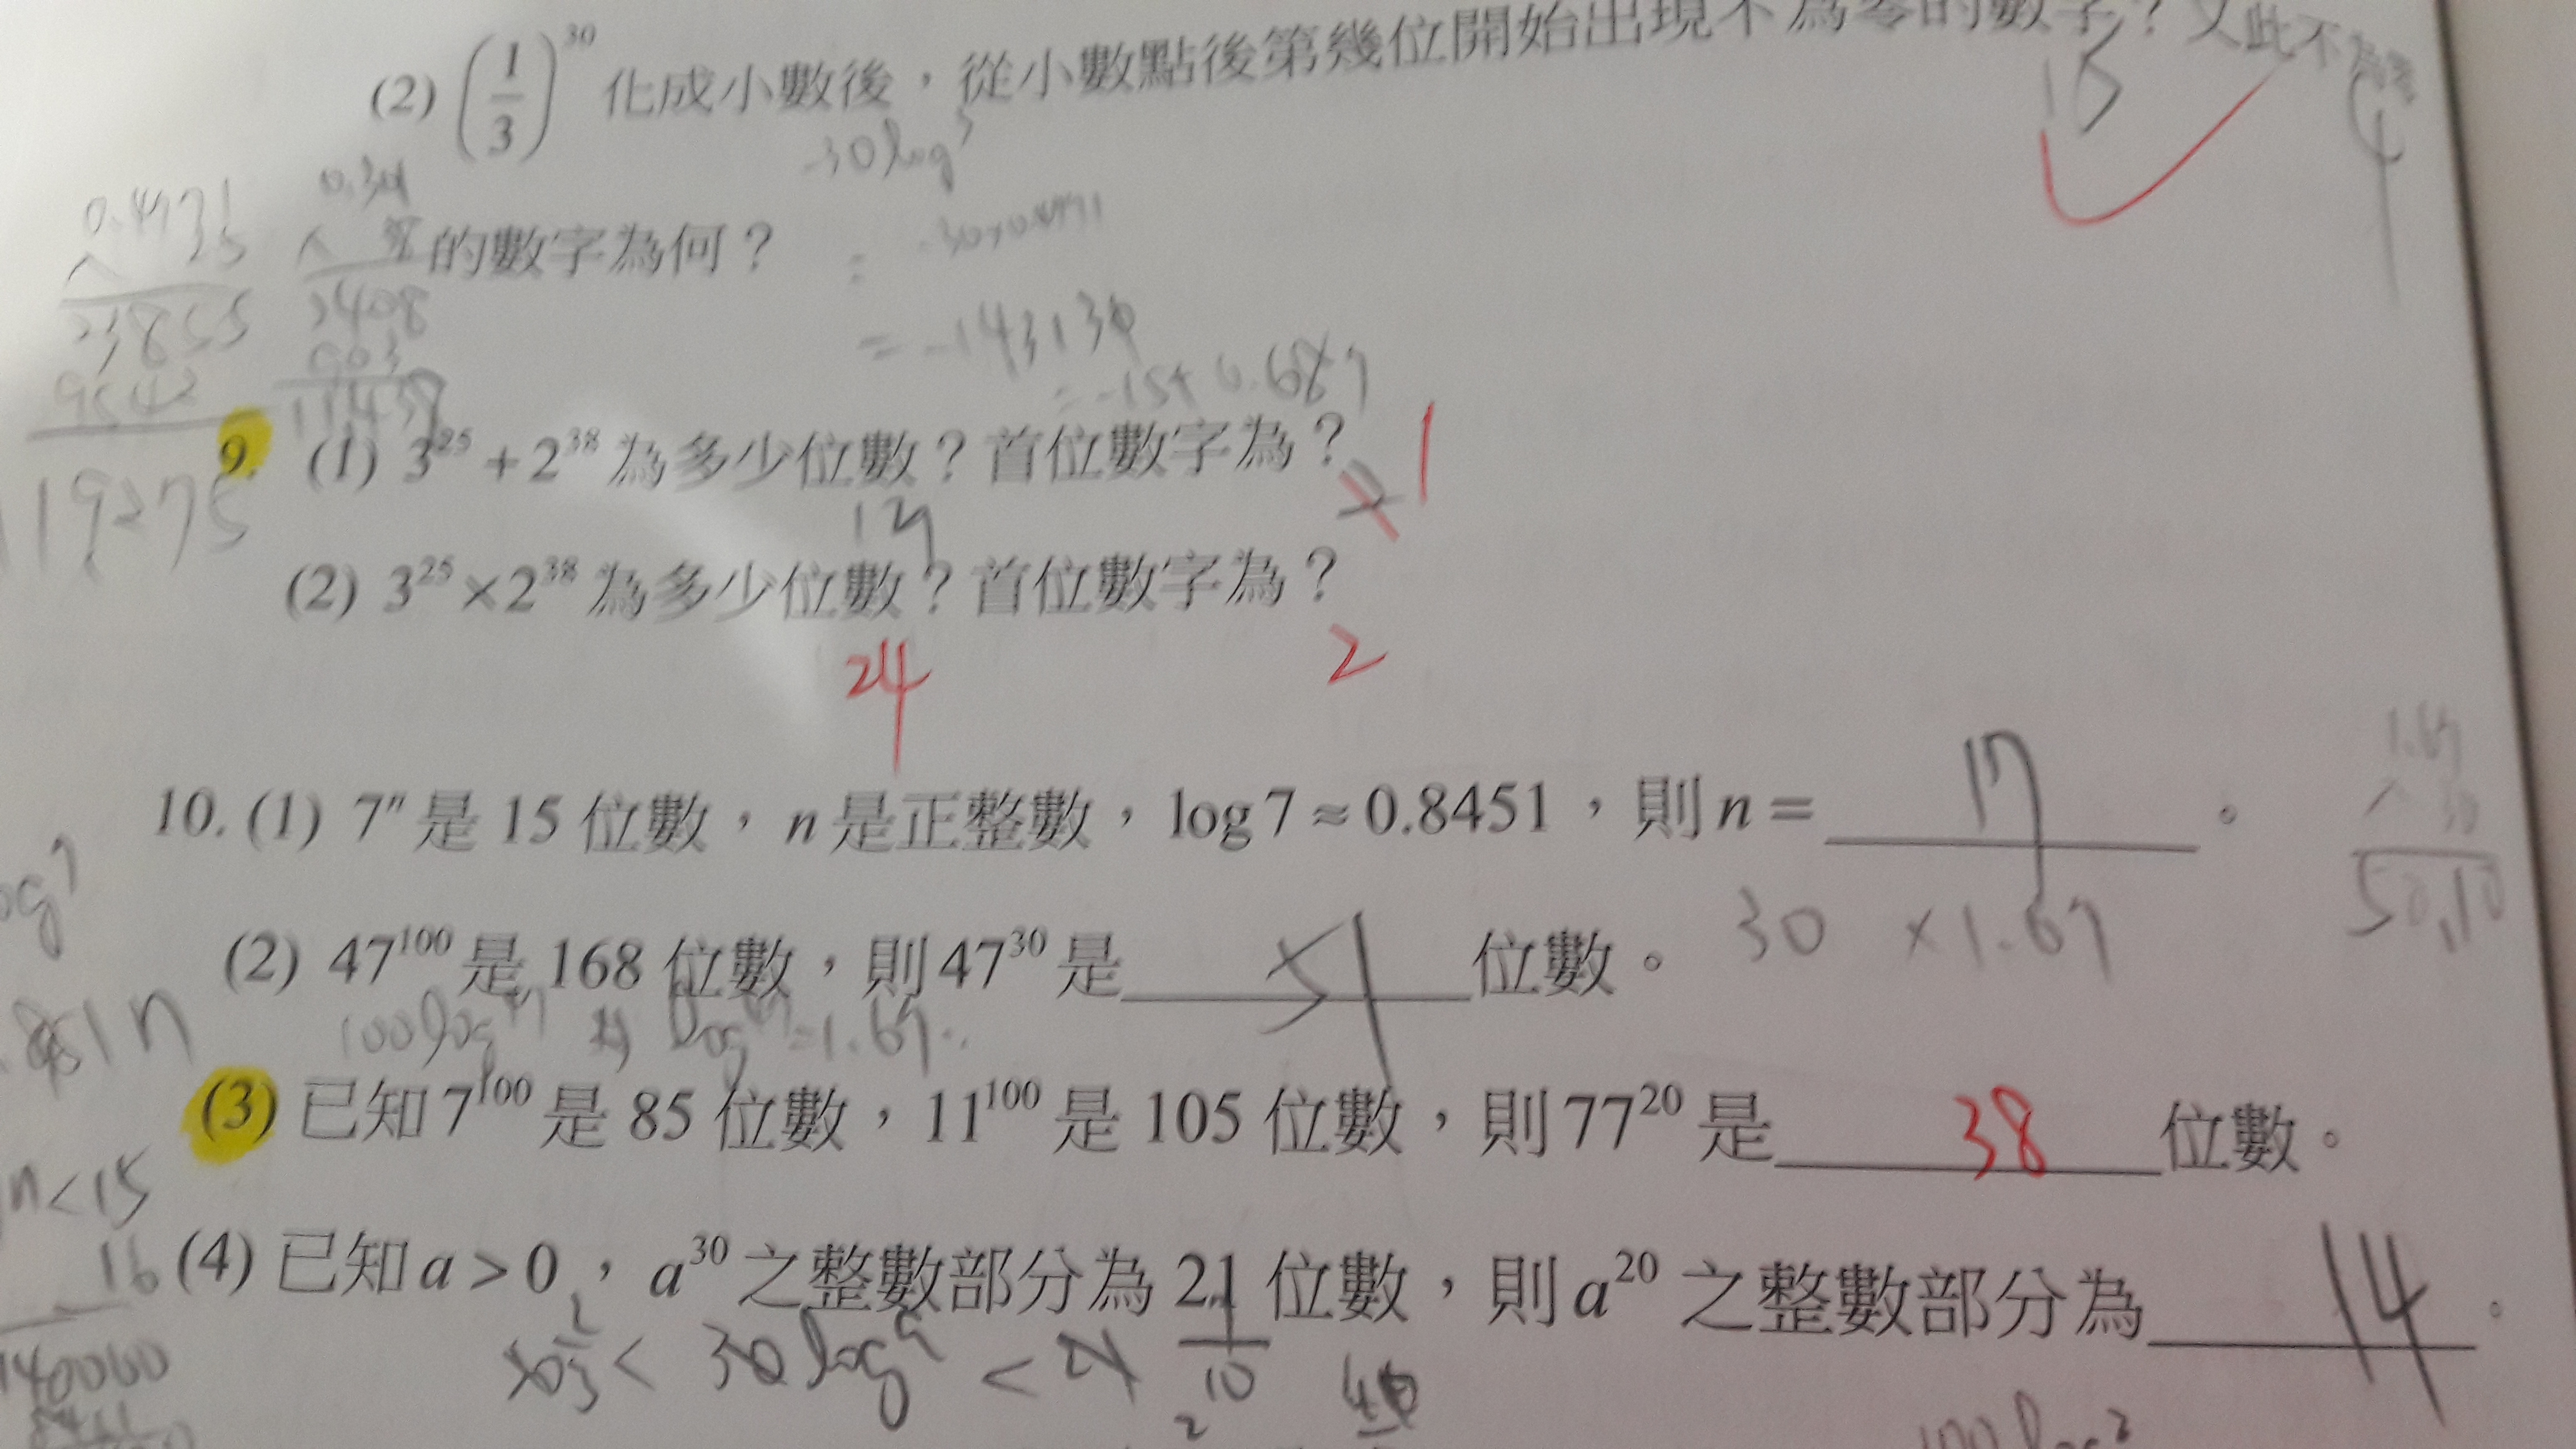 (2) (1/3)^30 化成小數後，從小數點後第幾位開始出現不為零的數字？又此不為零
15
4
-30log3
的數字為何？
0.4771
× 25
23855
9542
119275
0.301
× 38
2408
903
11438
= -30×0.4771
= -14.3130
= -15+0.687
9. (1) 3^25 + 2^38 為多少位數？首位數字為？
12
1
(2) 3^25 × 2^38 為多少位數？首位數字為？
24
2
10. (1) 7^n 是 15 位數，n 是正整數，log 7 ≈ 0.8451，則 n = 17 。
(2) 47^100 是 168 位數，則 47^30 是 51 位數。
30 × 1.67
1.67
× 30
50.10
100log47 log47=1.67..
(3) 已知 7^100 是 85 位數，11^100 是 105 位數，則 77^20 是 38 位數。
n<15
(4) 已知 a > 0，a^30 之整數部分為 21 位數，則 a^20 之整數部分為 14 。
16
140000